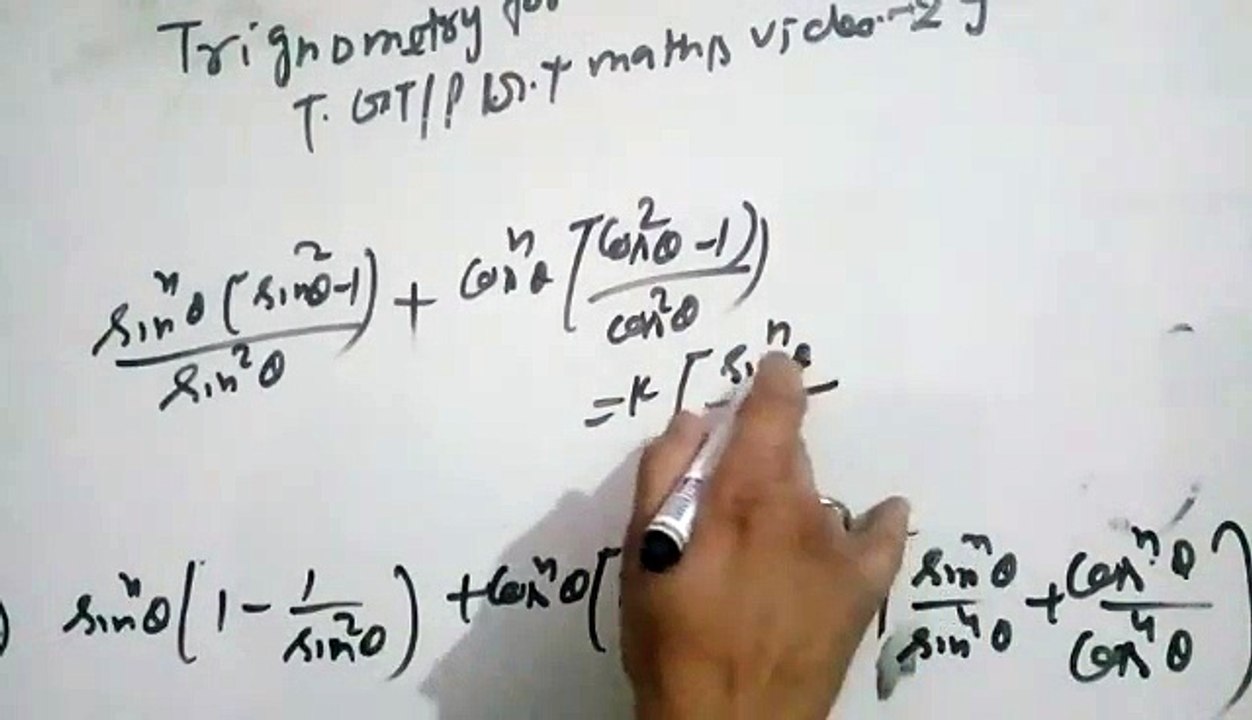 Trignometry for
T.GT/P.G.T maths video-2
sin^nθ (sin^2θ-1) / sin^2θ + cos^nθ [(cos^2θ-1) / cos^2θ]
=K [sin^nθ
sin^nθ (1 - 1/sin^2θ) + cos^nθ ( sin^nθ/sin^4θ + cos^nθ/cos^4θ )